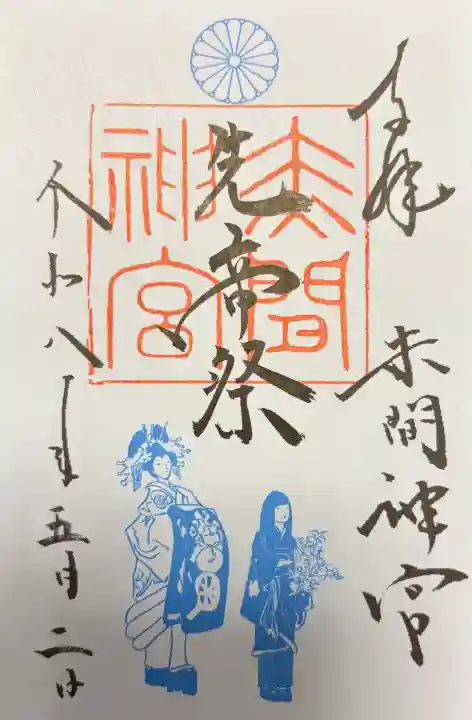 奉拝 赤間神宮
先帝祭
赤間
神宮
令和八年五月二日